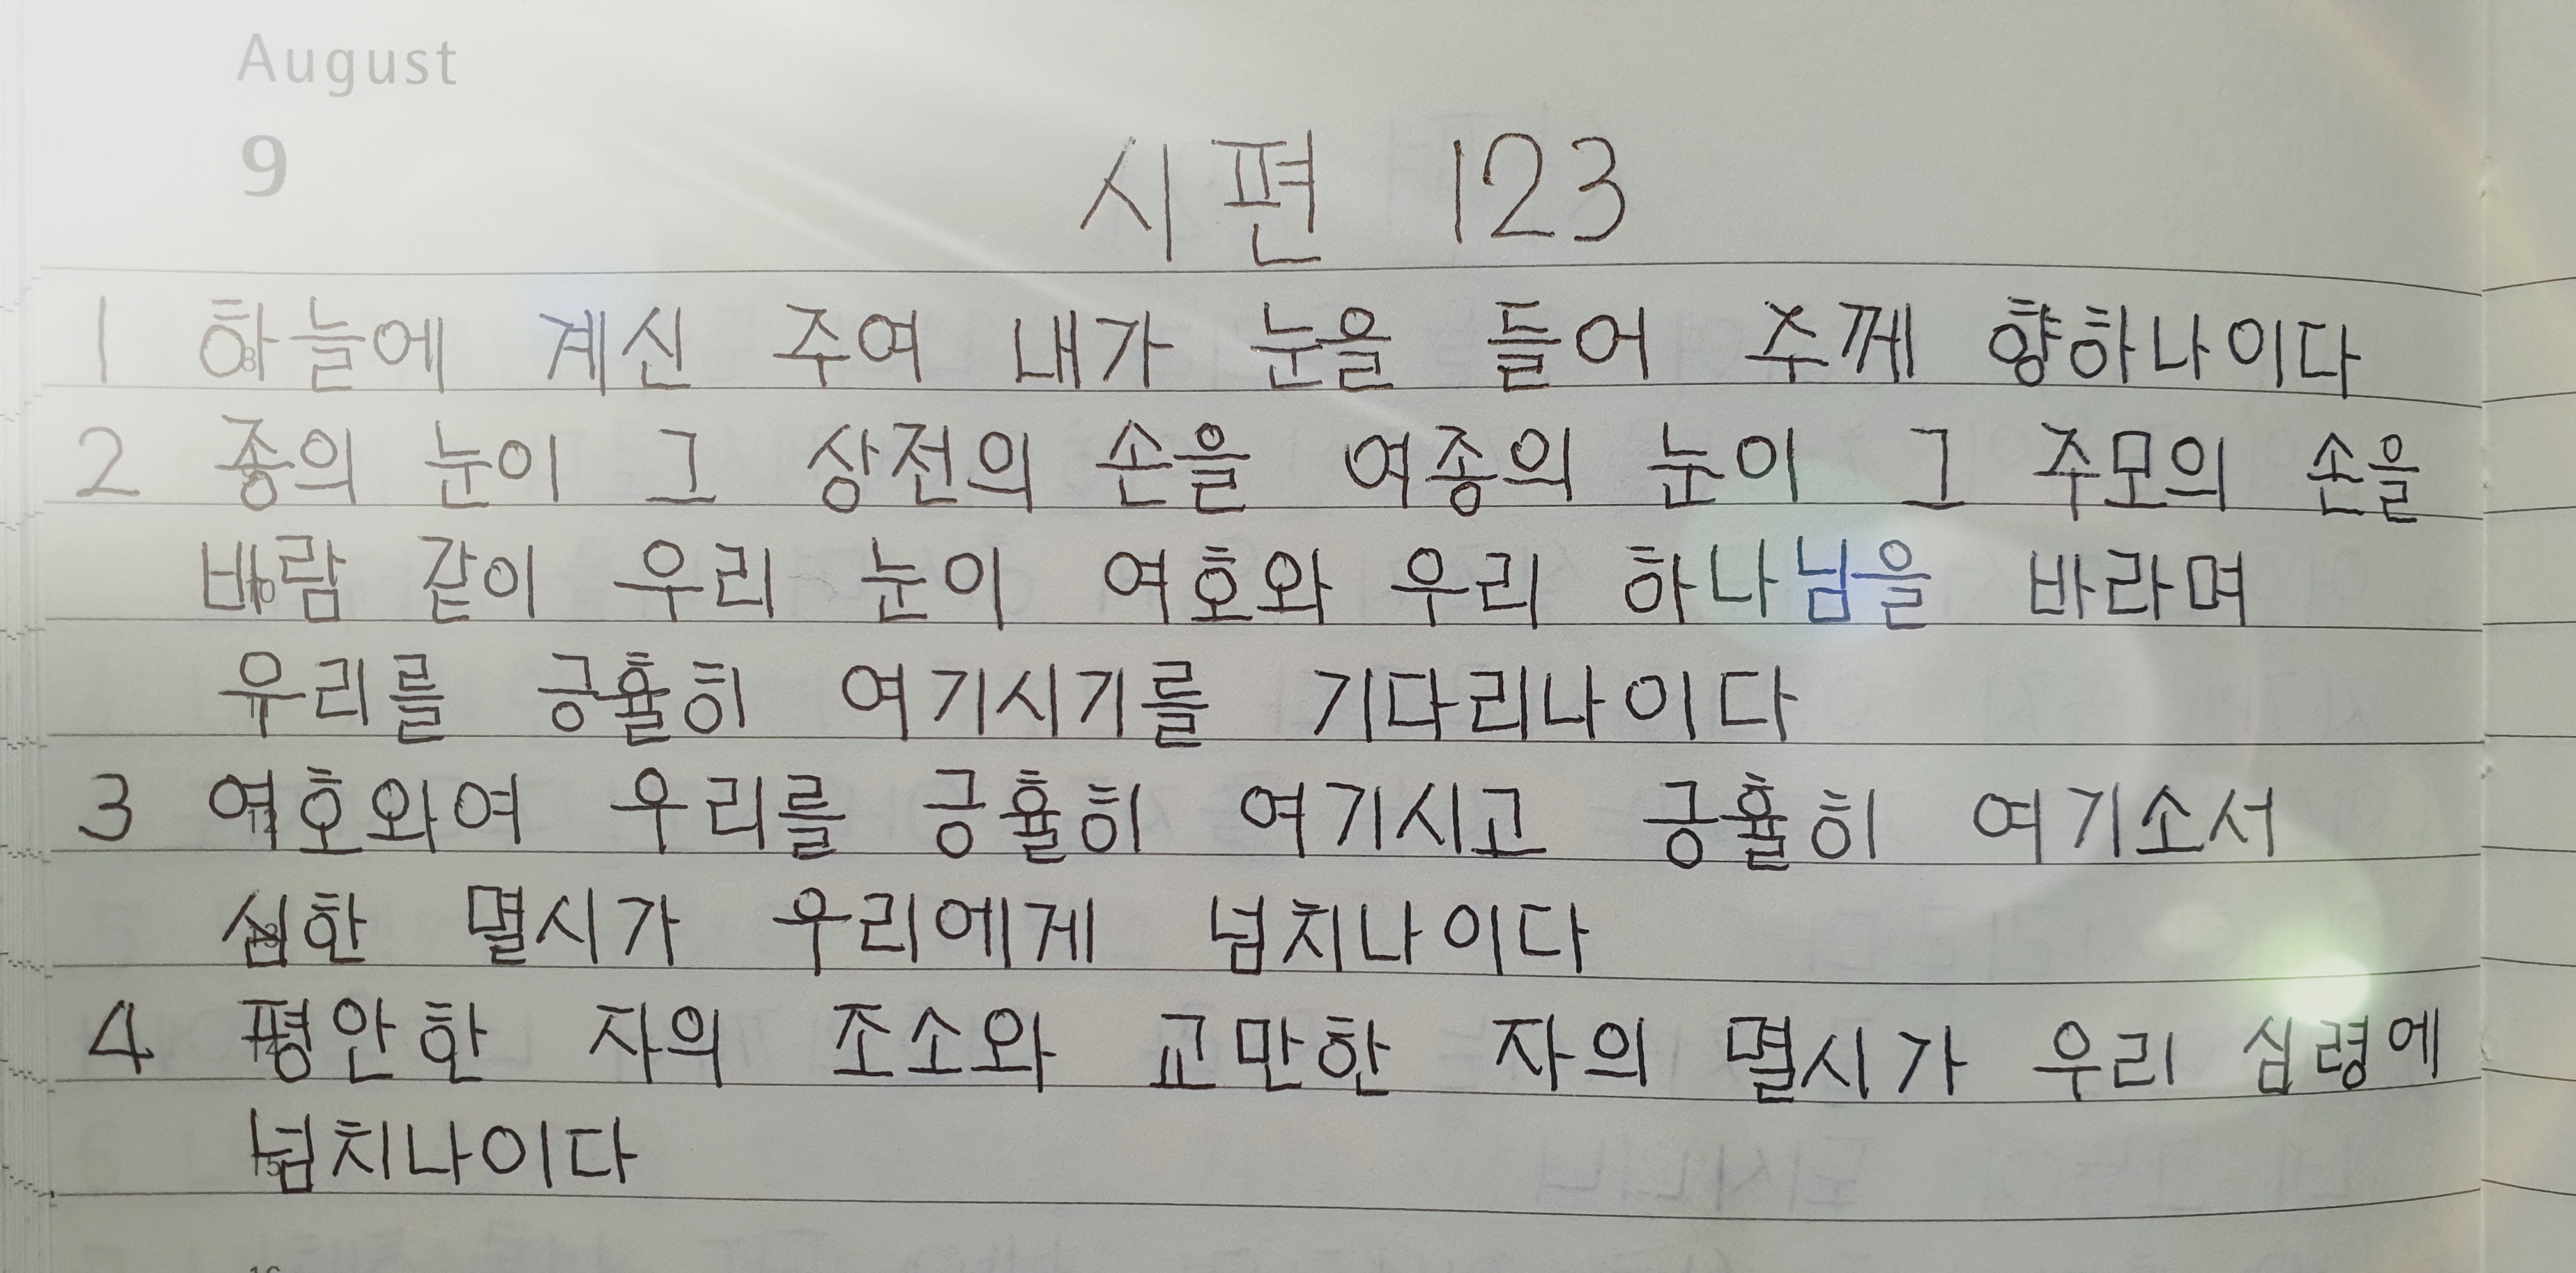 August
9
시편 123
1 하늘에 계신 주여 내가 눈을 들어 주께 향하나이다
2 종의 눈이 그 상전의 손을 여종의 눈이 그 주모의 손을
바람 같이 우리 눈이 여호와 우리 하나님을 바라며
우리를 긍휼히 여기시기를 기다리나이다
3 여호와여 우리를 긍휼히 여기시고 긍휼히 여기소서
심한 멸시가 우리에게 넘치나이다
4 평안한 자의 조소와 교만한 자의 멸시가 우리 심령에
넘치나이다